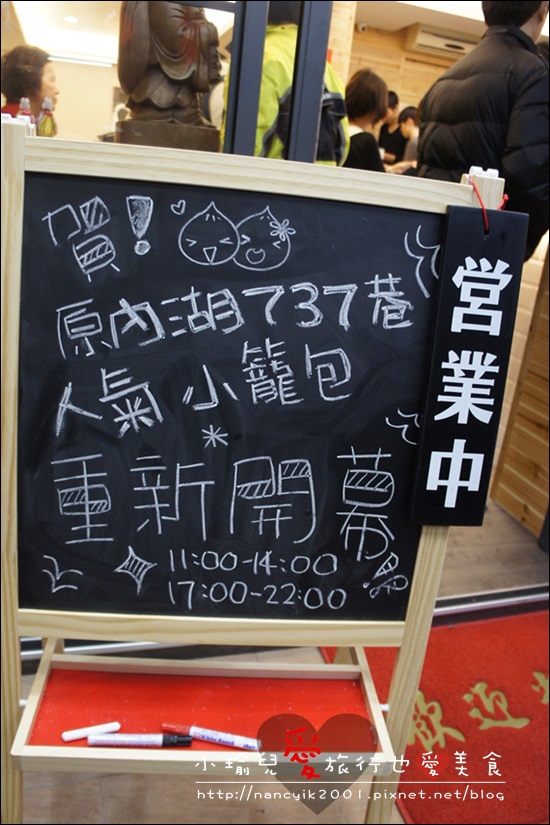 賀!
原內湖737巷
人氣小籠包
重新開幕
11:00-14:00
17:00-22:00
営業中
歡迎
小瑜兒愛旅行也愛美食
http://nancyik2001.pixnet.net/blog